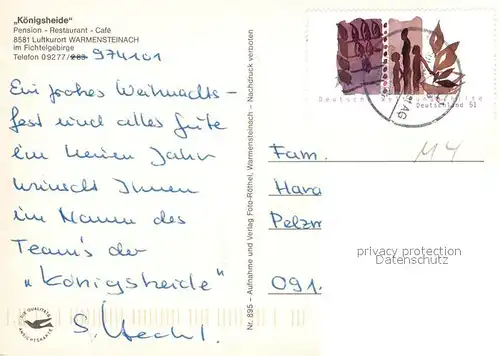 „Königsheide"
Pension - Restaurant - Café
8581 Luftkurort WARMENSTEINACH
im Fichtelgebirge
Telefon 09277/283 974101
Ein frohes Weihnachts-
fest und alles Gute
im neuen Jahr
wünscht Ihnen
im Namen des
Team's der
„Königsheide"
S.
DIE QUALITÄTS
ANSICHTSKARTE
Nr. 895 - Aufnahme und Verlag Foto-Röthel, Warmensteinach - Nachdruck verboten
Deutschland 51
M4
Fam.
Hara
Pelzm
091.
privacy protection
Datenschutz